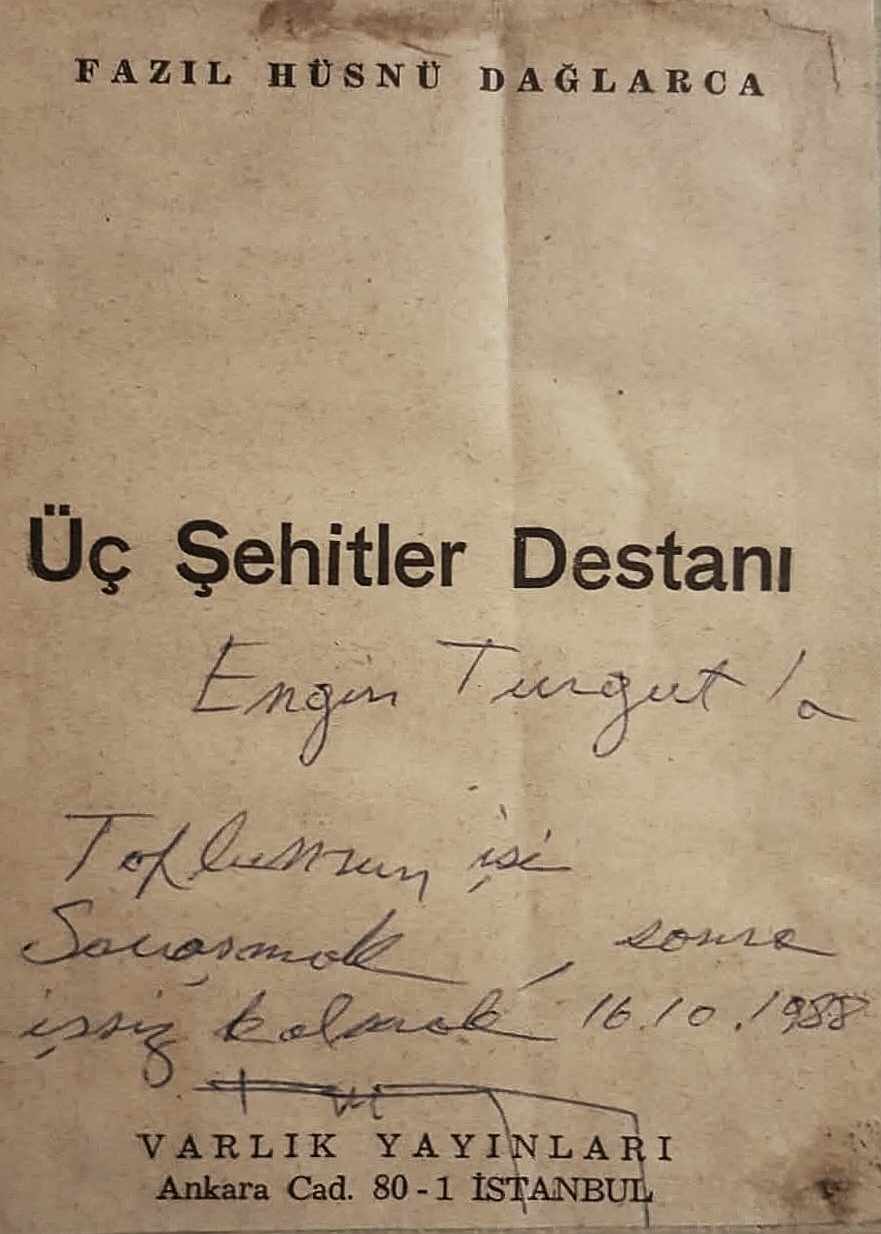 FAZIL HÜSNÜ DAĞLARCA
Üç Şehitler Destanı
Engin Turgut'a
Toplumun işi
Savaşmak, sonra
işsiz kalmak 16.10.1988
VARLIK YAYINLARI
Ankara Cad. 80-1 İSTANBUL